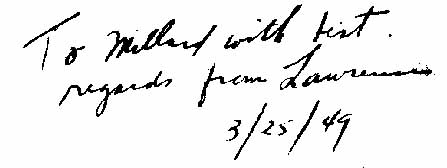 To Millard with best.
regards from Lawrence
3/25/49